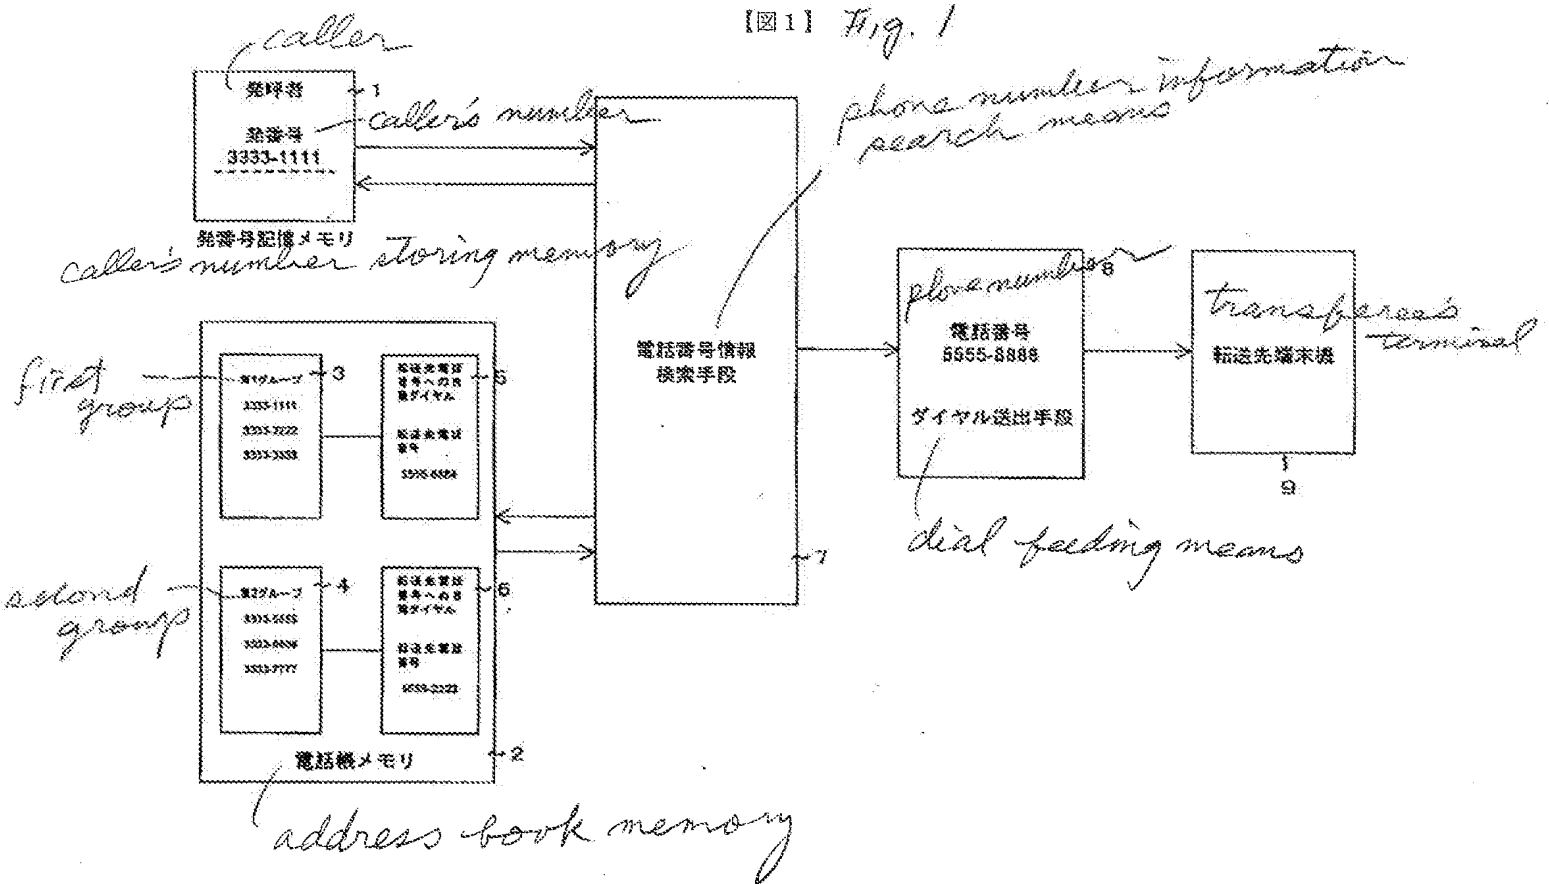 【図1】 Fig. 1
caller
発呼者
1
発番号
caller's number
3333-1111
発番号記憶メモリ
caller's number storing memory
phone number information
search means
電話番号情報
検索手段
7
first
group
第1グループ
3
3333-1111
3333-2222
3333-3333
転送先電話
番号への自
動ダイヤル
5
転送先電話
番号
second
group
第2グループ
4
3333-5555
3333-6666
3333-7777
転送先電話
番号への自
動ダイヤル
6
転送先電話
番号
電話帳メモリ
2
address book memory
phone number
8
電話番号
ダイヤル送出手段
dial feeding means
transferee's
terminal
転送先端末機
9